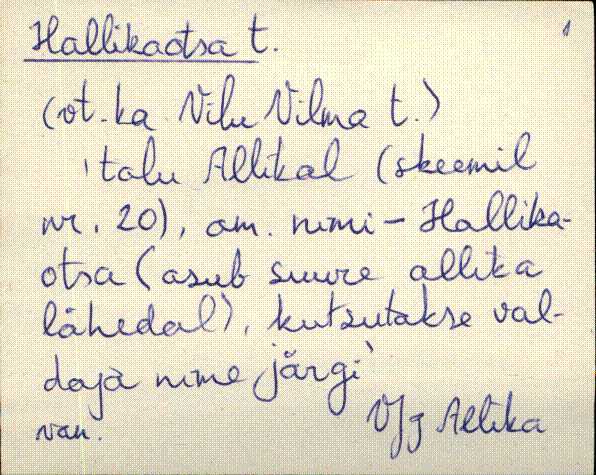 Hallikaotsa t.
1
(vt. ka Vilu Vilma t.)
'talu Allikal (skeemil
nr. 20), am. nimi – Hallika-
otsa (asub suure allika
lähedal), kutsutakse val-
daja nime järgi'
van.
VJg Allika